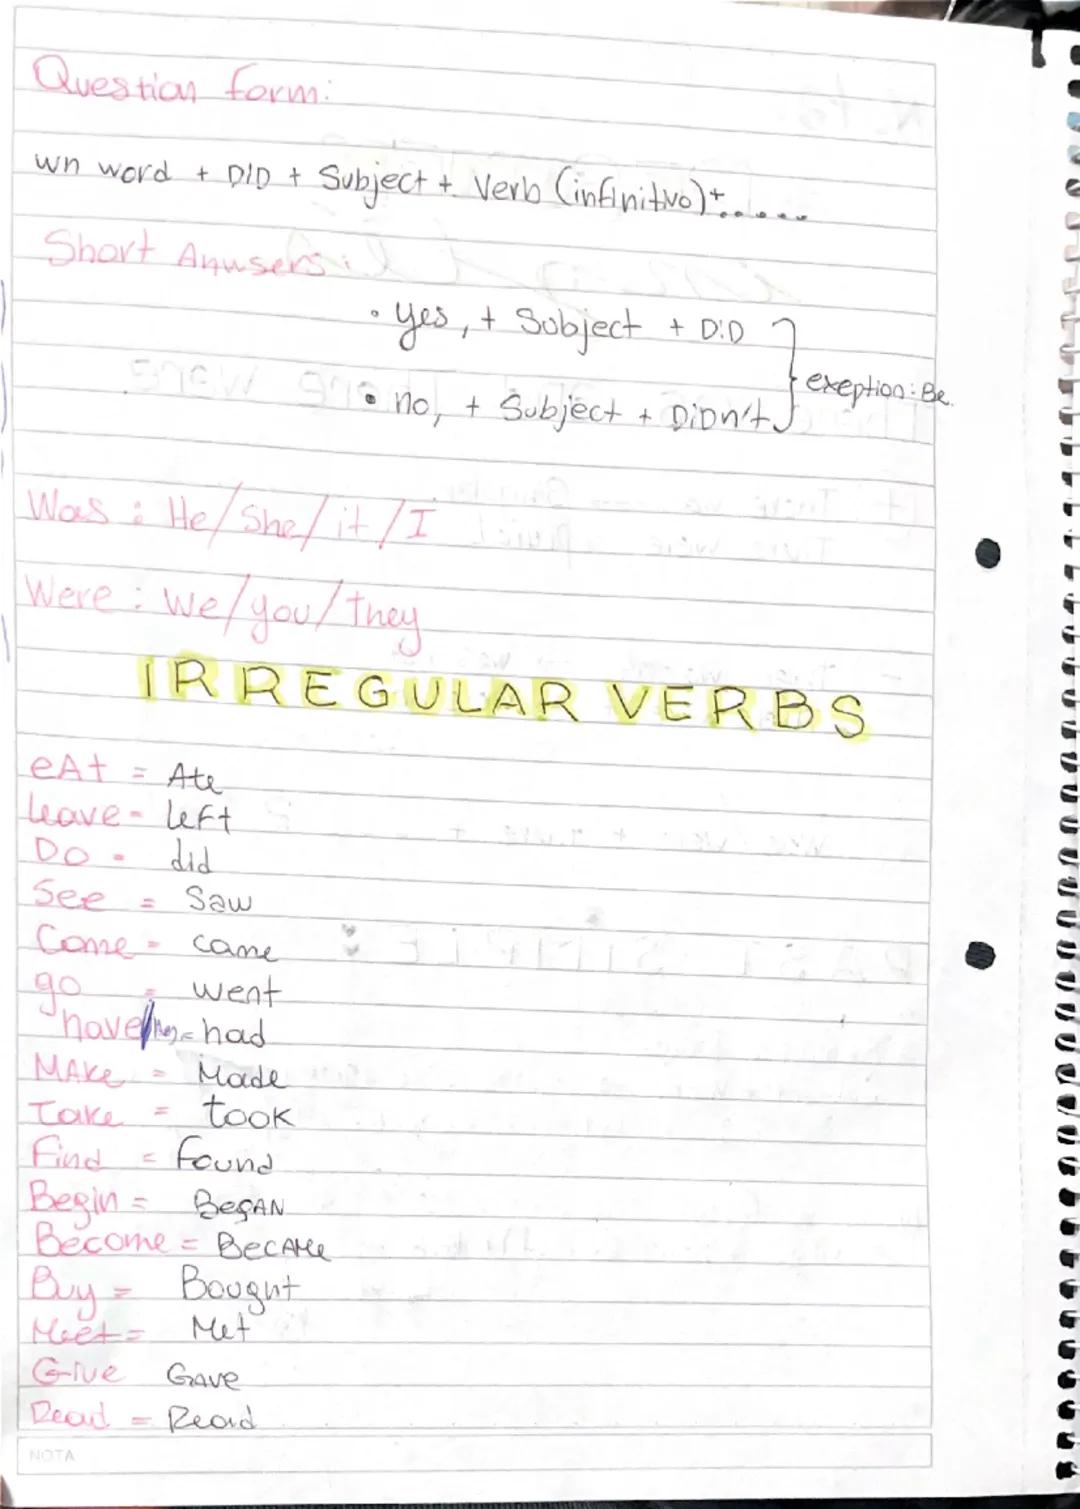 Question form:
wh word + DID + Subject + Verb (infinitivo)+.....
Short Anwsers:
• yes, + Subject + DiD
exeption: Be.
• no, + Subject + DiDn't
Was : He/She/it/I
Were : We/you/they
IRREGULAR VERBS
eAt = Ate
leave - left
DO - did
See = Saw
Come - came
go - went
have/ = had
MAke = Made
Take = took
Find = found
Begin = BegAN
Become = BecAMe
Buy = Bought
Meet = Met
Give Gave
Read = Read
NOTA